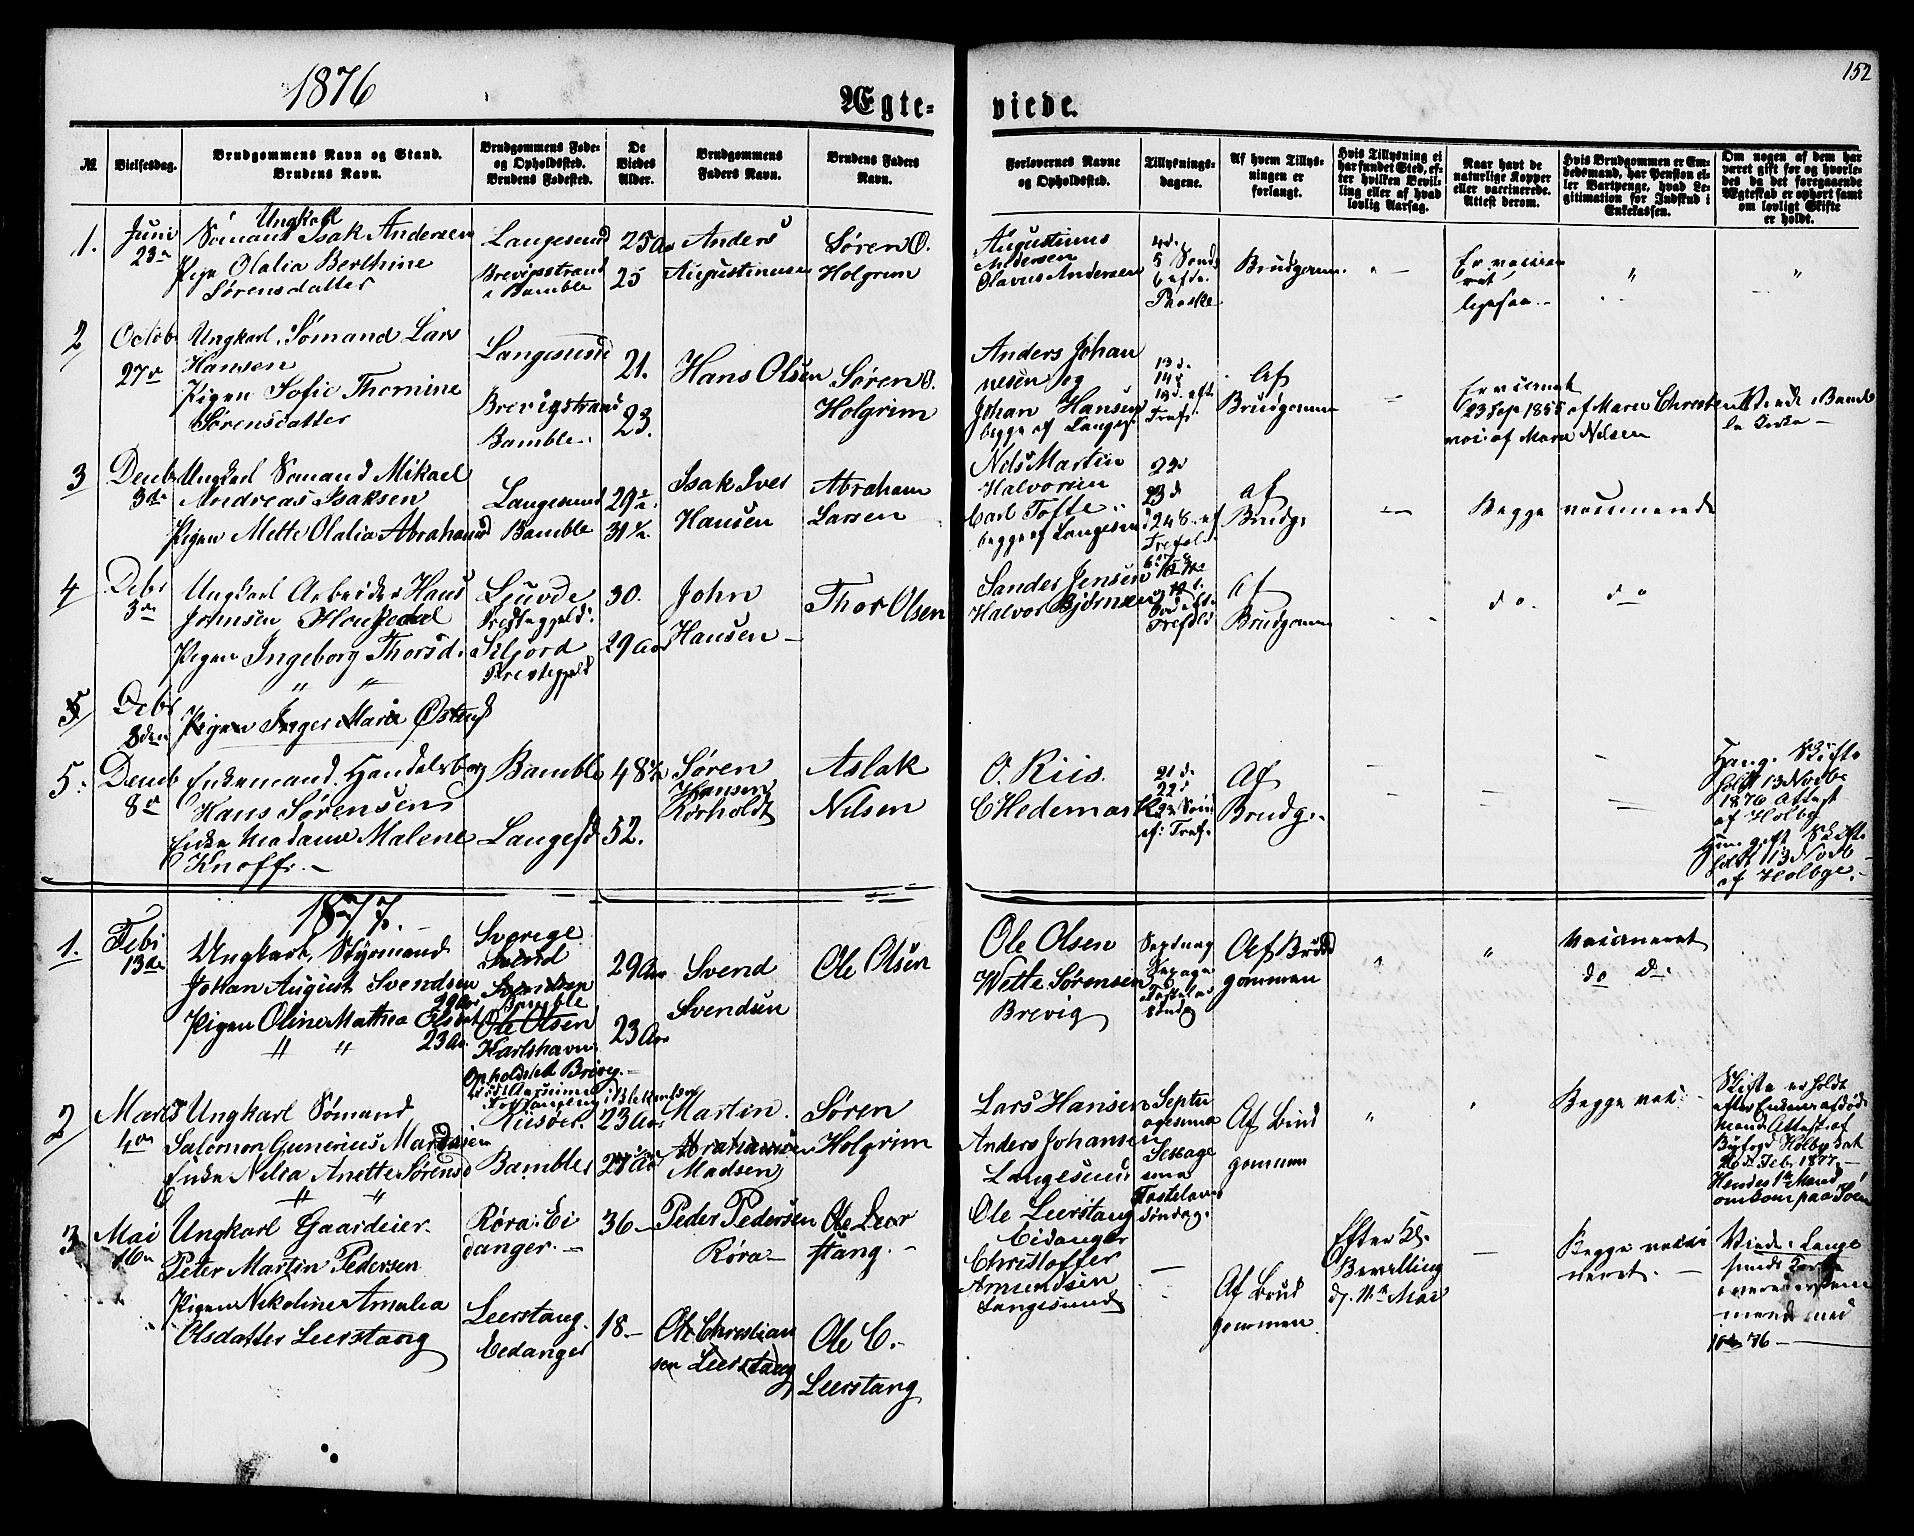 1876
152
Ægte-
viede.
№
Vielsesdag.
Brudgommens Navn og Stand.
Brudens Navn.
Brudgommens Føde-
og Opholdsted.
Brudens Fødested.
De
Viedes
Alder.
Brudgommens
Faders Navn.
Brudens Faders
Navn.
Forlovernes Navne
og Opholdsted.
Tillysnings-
dagene.
Af hvem Tillys-
ningen er
forlangt.
Hvis Tillysning ei
har fundet Sted, ef-
ter hvilken Bevil-
ling eller af hvad
lovlig Aarsag.
Naar havt de
naturlige Kopper
eller vaccinerede.
Attest derom.
Hvis Brudgommen er Em-
bedsmand, har Pension el-
ler Vartpenge, hvad Le-
gitimation for Indskud i
Enkekassen.
Om nogen af dem har
været gift før og hvorle-
des da det foregaaende
Ægteskab er ophørt samt
om lovligt Skifte
er holdt.
1.
Juni
23
Ungkarl
Sømand Isak Andersen
Pige Olalia Berthine
Sørensdatter
Langesund
Brevigstrand
i Bamble
25 Aar
25
Anders
Augustinusen
Søren O.
Holgrim
Augustinus
Andersen
Olavus Andersen
4d.
5 Sønd
6 efter
Paaske
Brudgomm.
Er vaccine
ret
ligesaa
2
Octob
27
Ungkarl, Sømand Lars
Hansen
Pigen Sofie Thomine
Sørensdatter
Langesund
Brevigstrand
Bamble.
21.
23.
Hans Olsen
Søren O.
Holgrim
Anders Johan
nesen og
Johan Hansen
begge af Langes
13 d.
14 d
15 d. eft.
Tref.
Af
Brudgomm
23 Sep 1855 af Maren Christen
vac. af Maren Nilsen
Viede i Bamb
le Kirke
3
Decmb
3de
Ungkarl Sømand Mikael
Andreas Isaksen
Pigen Mette Olalia Abrahamsd
Langesund
Bamble
29
31 ½
Isak Iver
Hansen
Abraham
Larsen
Nils Martin
Halvorsen
Carl Tofte
begge af Langesund
22
23 d
24 S. af
Trefol.
af
Brudg.
Begge vaccinerede
4
Debr
3de
Ungkarl Arbeider Hans
Johnsen
Pigen Ingeborg Thorsd.
Prestegjeld.
Siljord
Prestegjeld
30.
29 aar
John
Hansen
Thor Olsen
Sander Jensen
Halvor Bjørnsen
Af
Brudgomm
do.
do
5
Debr
8den
Pigen Inger Marie Østrup
5.
Decmb
8 d
Enkemand, Handelsborg
Hans Sørensen
Enke Madame Malene
Knoff.
Bamble
Langesd
48 ½
52.
Søren
Hansen
Rørholdt
Aslak
Nilsen
O. Riis.
C Hedemark
21 d.
22 d
23 Sønd
ef. Tref.
Af
Brudg.
Hang. Skifte
holdt 13 Novbr
1876 Attest
af Holbg
Hun gift Skifte
holdt 13 Novb
af Holbge.
1877.
1.
Febr
13de
Ungkarl, Styrmand
Johan August Svendsen
29 aar
Pigen Oline Mathea Olsdat
23 Aa.
Sverige
Svend
Svendsen
Bamble
Ole Olsen
Karlshavn
Opholdsted Brevig.
29 Aar
23 Aar
Svend
Svendsen
Ole Olsen
Ole Olsen
Wette Sørensen
Brevig
Fastelav
søndag
Af Brud
gommen
Vaccineret
do do
2
Marts
4de
Ungkarl Sømand
Salomon Gunerius Martinsen
Enke Nelia Anette Sørensd
Riisøer.
Bamble
23 Aar
27 Aar
Martin.
Abrahamsen
Madsen
Søren
Holgrim
Lars Hansen
Anders Johansen
Langesund
Septu
agesima
Sexage
sima
Fastelavns
søndag.
Af Brud
gommen
Begge vac.
Skifte er holdt
efter Enkens afdøde
Mand Attest af
Byfogd Holby dat
26 Feb. 1877.
Hendes 1ste Mand
omkom paa Søen
3
Mai
16
Ungkarl Gaardeier
Peter Martin Pedersen
Pigen Nikoline Amalia
Olsdatter Leerstang
Røra: Ei
danger.
Leerstang
Eedanger
36
18
Peder Pedersen
Røra
Ole Christian
sen Leerstang
Ole Leer
stang.
Ole C.
Leerstang
Ole Leerstang
Eidanger
Christoffer
Amundsen
Langesund
Af Brud
gommen
Efter Kl.
Bevilling
d. 11 Mai
Begge vacci
neret.
Viede i Lange
sunds Kirke